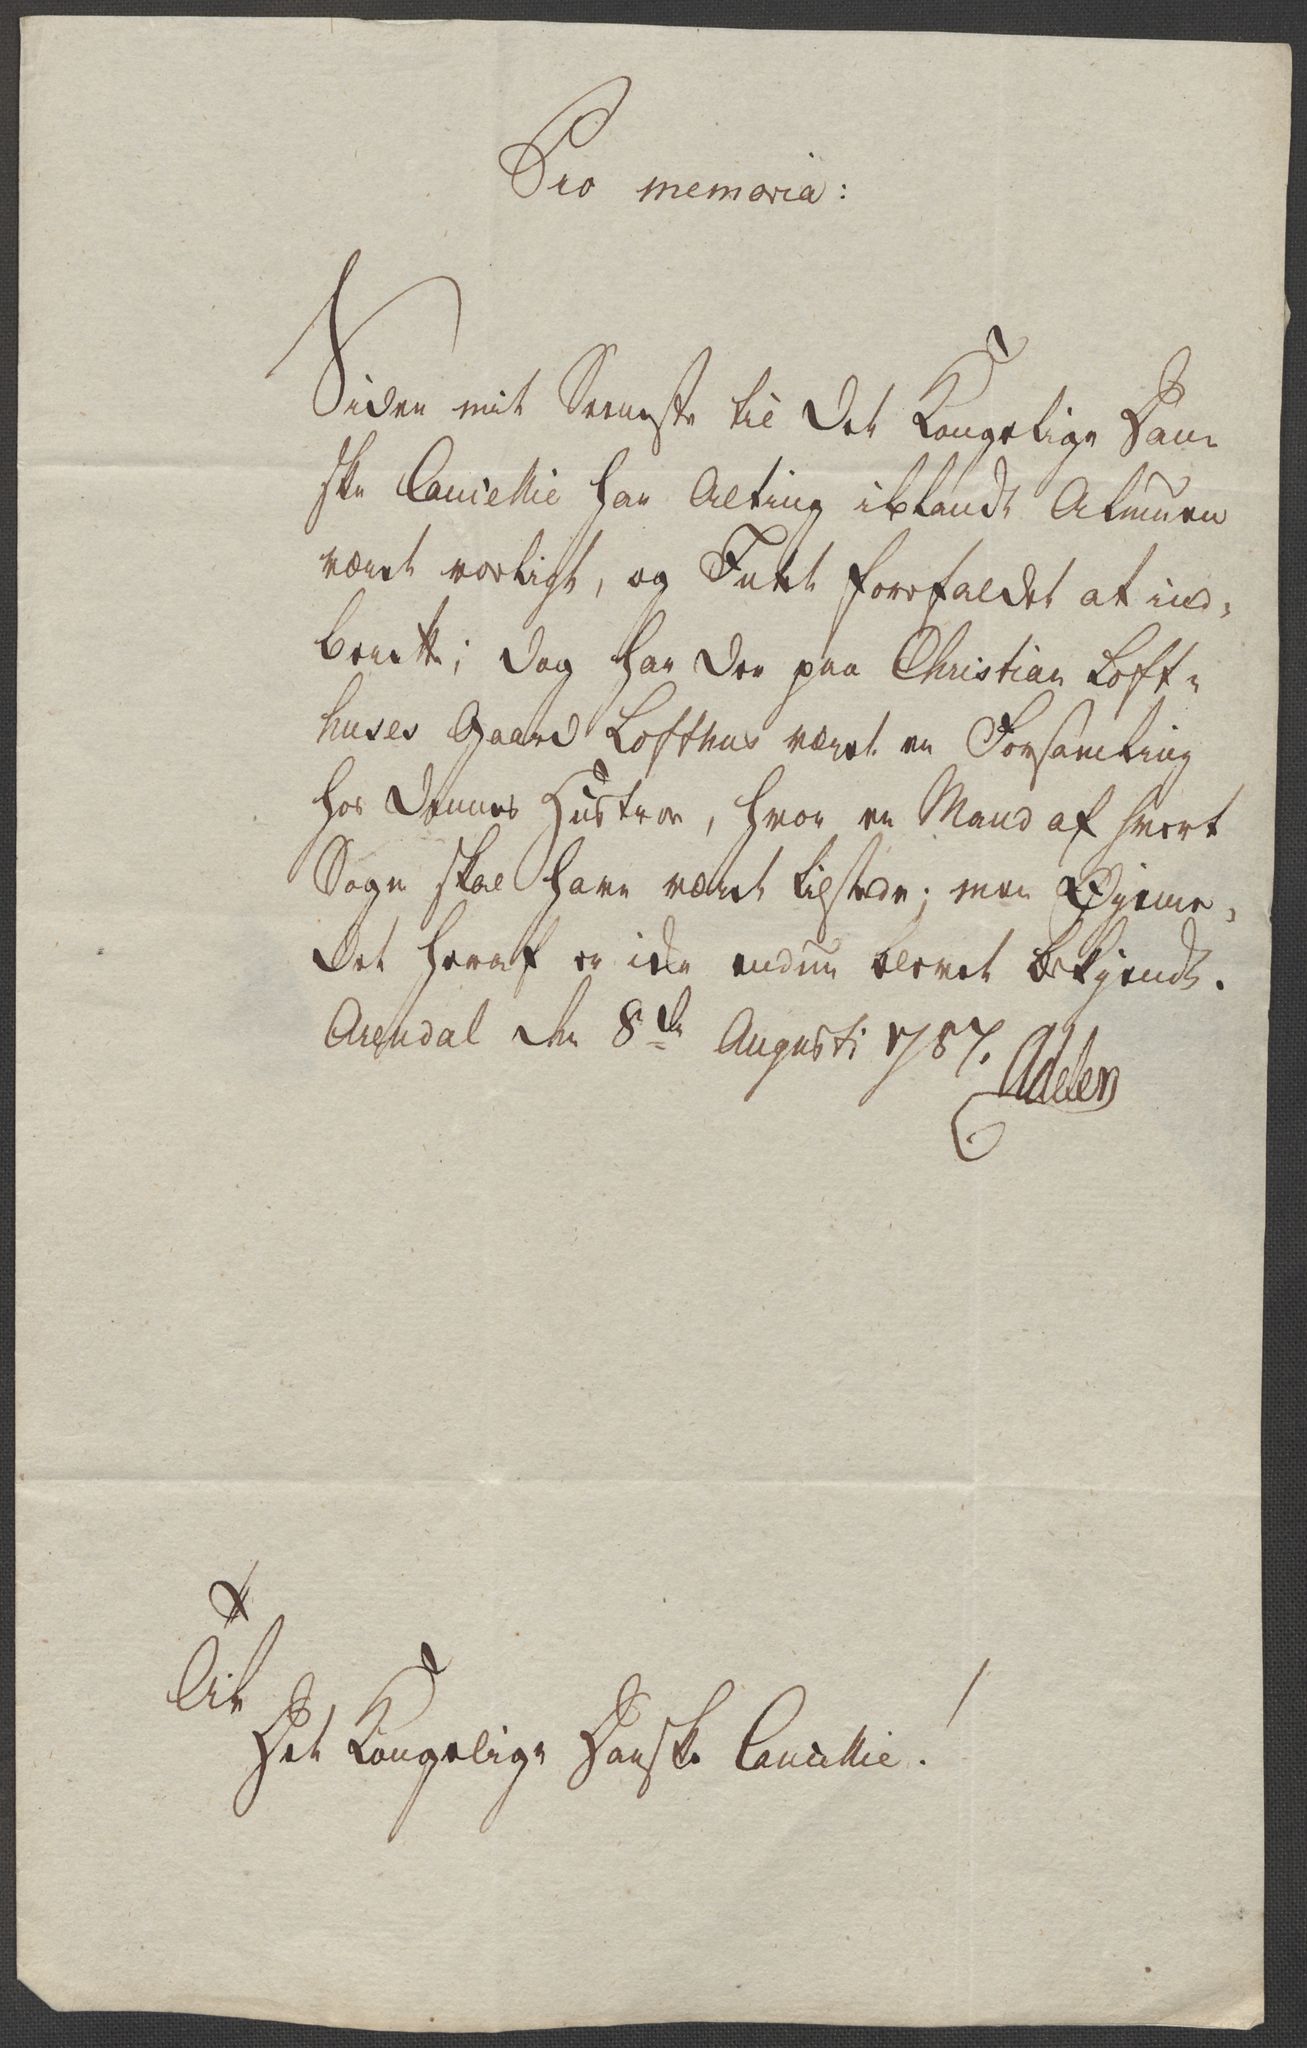 Pro memoria:
Siden mit Seeneste til det Kongelige Dan-
ske Cancellie har Alting iblandt Almuen
været roeligt, og Intet forefaldet at ind-
berette; dog har der paa Christian Loft-
huses Gaard Lofthus været en Forsamling
hos dennes Hustroe, hvor en Mand af hvert
Sogn skal have været tilstede; men Øyeme-
det heraf er icke endnu blevet bekjendt.
Arendal den 8de Augusti 1787.
Adeler
Til
Det Kongelige Danske Cancellie!